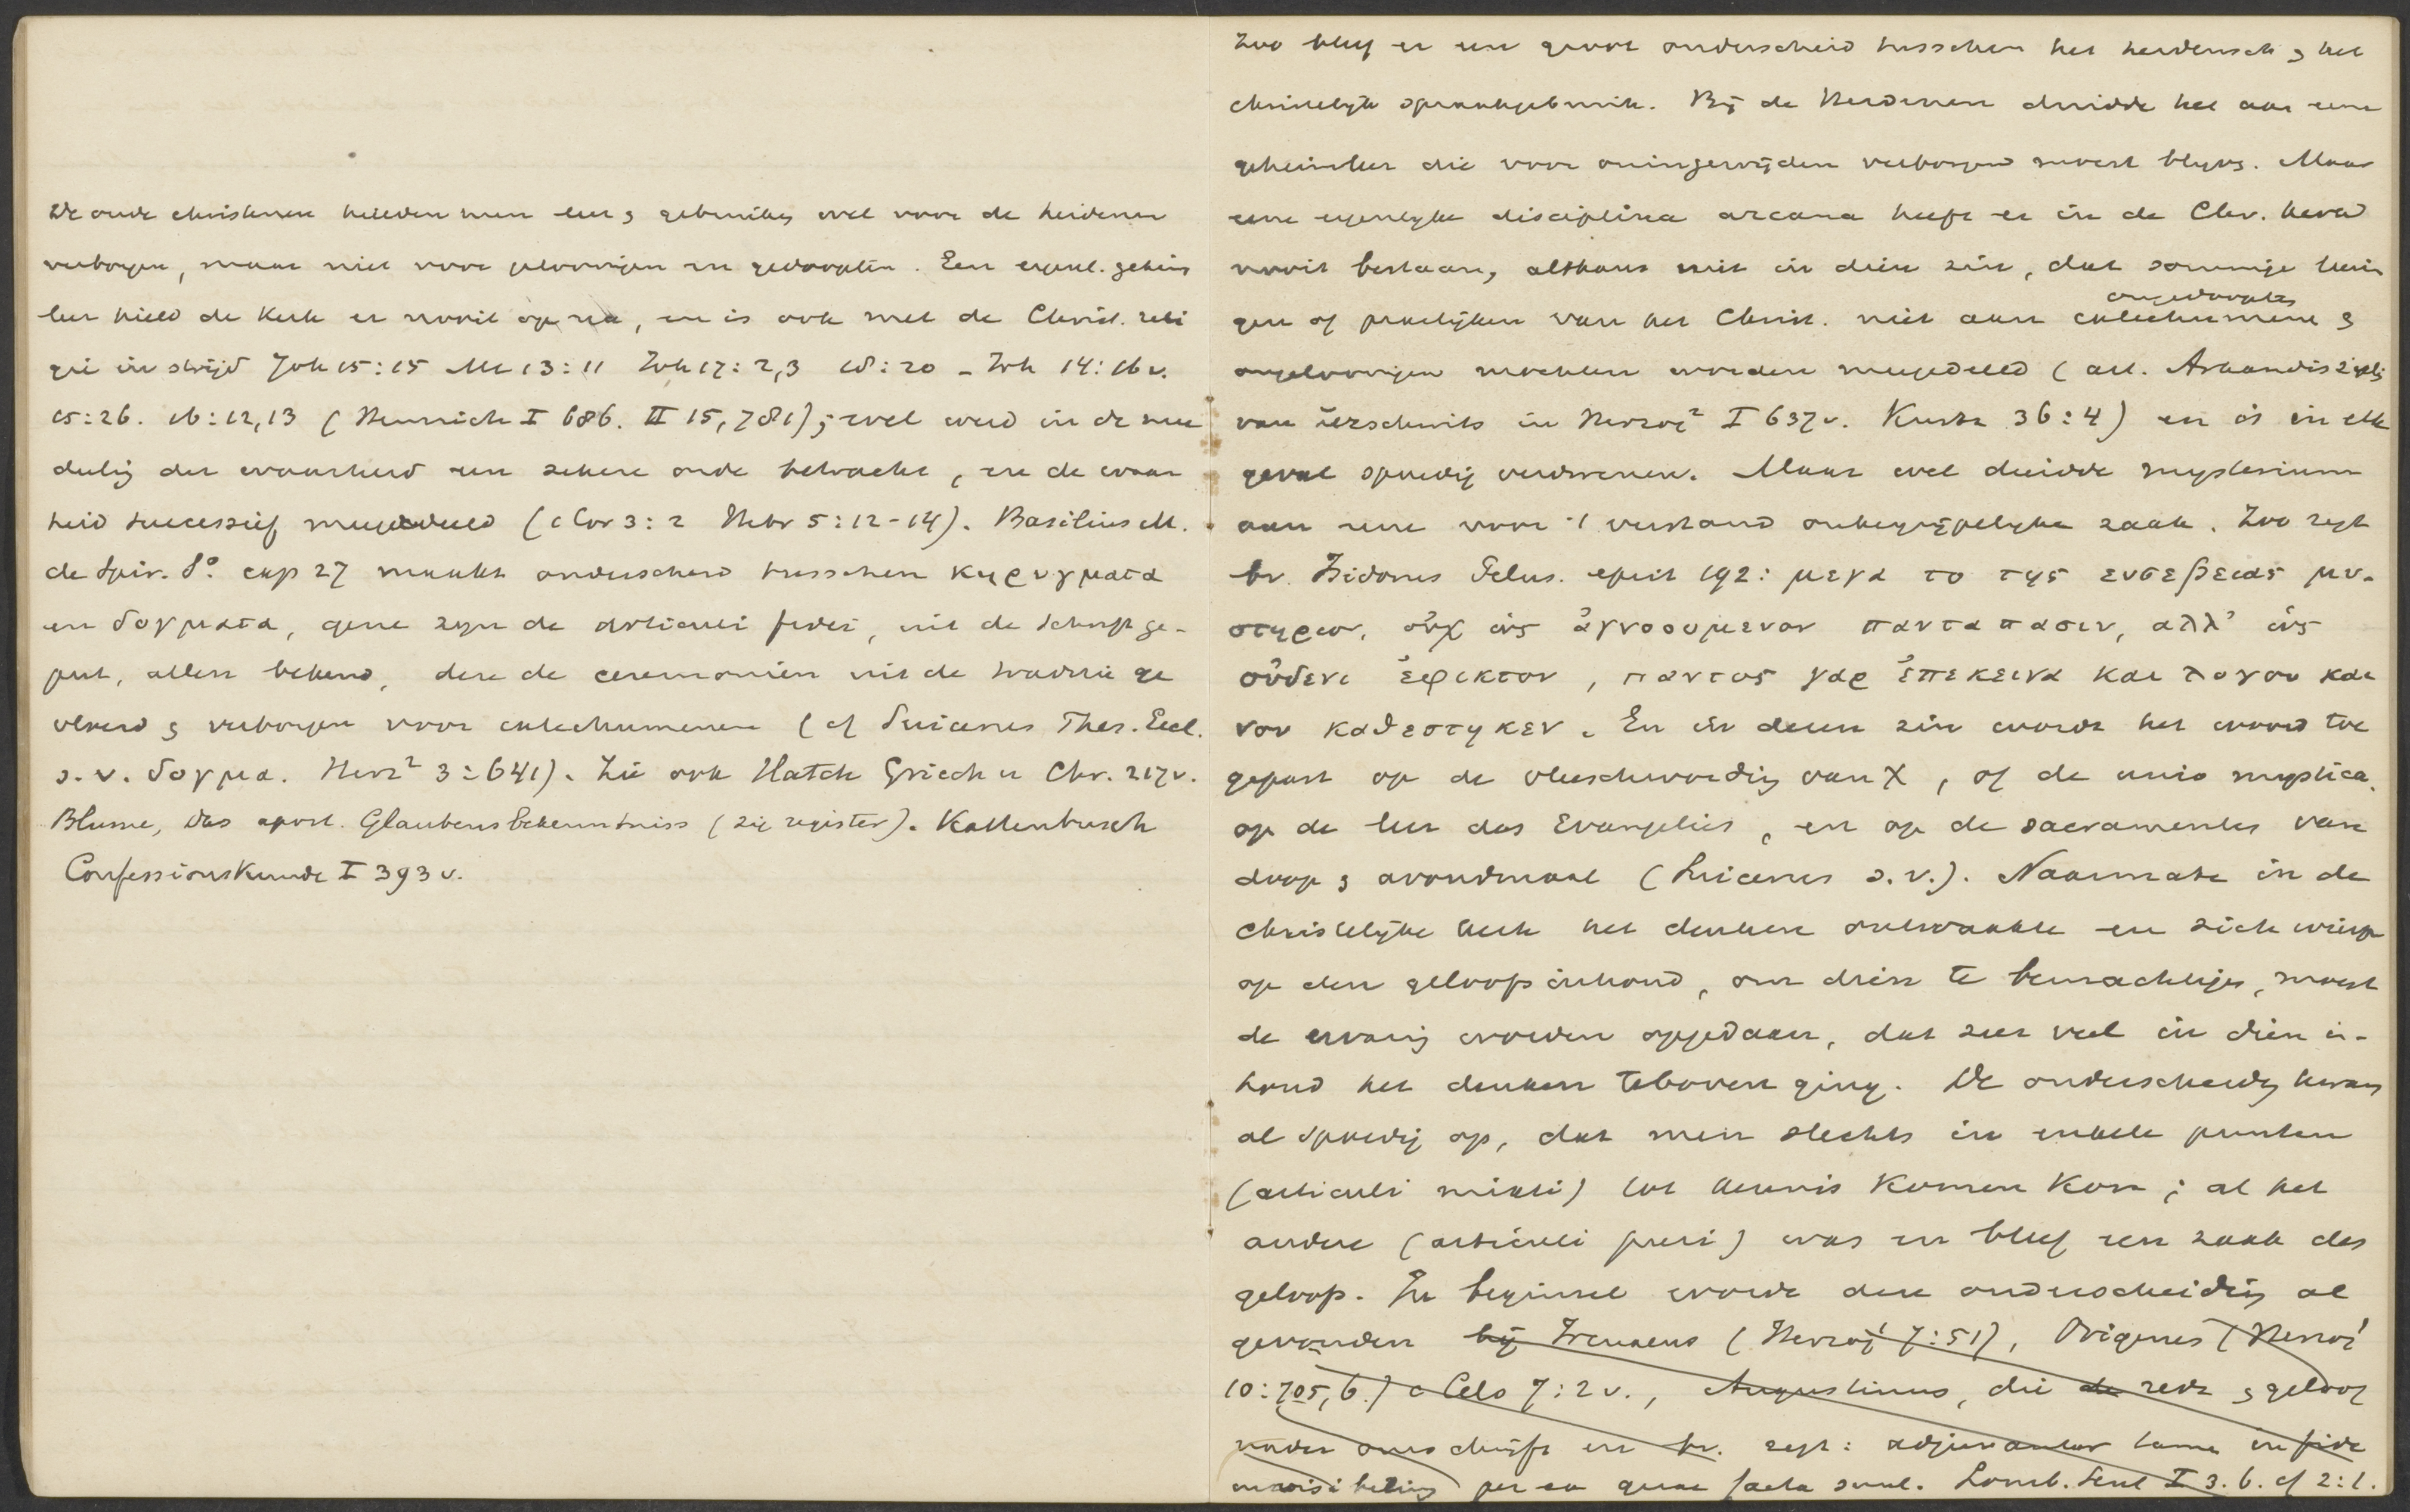 De oude christenen hielden hun leer & gebruiken wel voor de heidenen
verborgen, maar niet voor geloovigen en gedoopten. Een eigenl. geheim
leer hield de Kerk er nooit op na, en is ook met de Christ. reli
gie in strijd Joh 15:15 Mt 13:11 Joh 17:2,3 18:20 - Joh 14:16 v.
15:26. 16:12,13 (Heinrich I 686. II 15, 781); wel werd in de mee
deeling der waarheid een zekere orde betracht, en de waar
heid successief meegedeeld (1 Cor 3:2 Hebr 5:12-14). Basilius M.
de Spir. So cap 27 maakt onderscheid tusschen κηρυγματα
en δογματα, gene zijn de articuli fidei, uit de Schrift ge-
put, allen bekend, deze de ceremoniën uit de traditie ge
vloeid & verborgen voor catechumenen (cf Suicerus Thes. Eccl.
s.v. δογμα. Herz² 3:641). Zie ook Hatch Griech u Chr. 217v.
Blume, das apost. Glaubensbekenntniss (zie register). Kattenbusch
Confessionskunde I 393 v.
Zoo bleef er een groot onderscheid tusschen het heidensch & het
christelijk spraakgebruik. Bij de Heidenen duidde het aan eene
geheimleer die voor oningewijden verborgen moest blijven. Maar
eene eigenlijke disciplina arcana heeft er in de Chr. kerk
nooit bestaan, althans niet in dien zin, dat sommige
gen of praktijken van het Christ. niet aan catechumenen &
ongedoopten
ongeloovigen mochten worden meegedeeld (art. Arkandiszipl.
van Zezschwitz in Herzog² I 637v. Kurtz 36:4) en is in elk
geval spoedig verdwenen. Maar wel duidde mysterium
aan eene voor 't verstand onbegrijpelijke zaak. Zoo zegt
bv. Isidorus Pelus. epist 192: μεγα το της ευσεβειας μυ-
στηριον, οὐχ ὡς ἀγνοουμενον πανταπασιν, αλλ' ὡς
οὐδενι ἐφικτον, παντος γαρ ἐπεκεινα και λογου και
νου καθεστηκεν. En in dezen zin wordt het woord toe
gepast op de vleeschwording van X, of de unio mystica,
op de leer des Evangelies, en op de sacramenten van
doop & avondmaal (Suicerus s.v.). Naarmate in de
christelijke kerk het denken ontwaakte en zich wierp
op den geloofsinhoud, om dien te bemachtigen, moest
de ervaring worden opgedaan, dat zeer veel in dien in-
houd het denken teboven ging. De onderscheiding kwam
al spoedig op, dat men slechts in enkele punten
(articuli mixti) tot kennis komen kon; al het
andere (articuli puri) was en bleef een zaak des
geloofs. In beginsel wordt deze onderscheiding al
gevonden bij Irenaeus (Herzog¹ 7:51), Origenes (Herzog¹
10:705,6.) c Cels 7:2v., Augustinus, die de rede & geloof
nader omschrijft en bv. zegt: adjuvantur tamen in fide
invisibilium per ea quae facta sunt. Lomb. Sent I 3.6. cf 2:1.